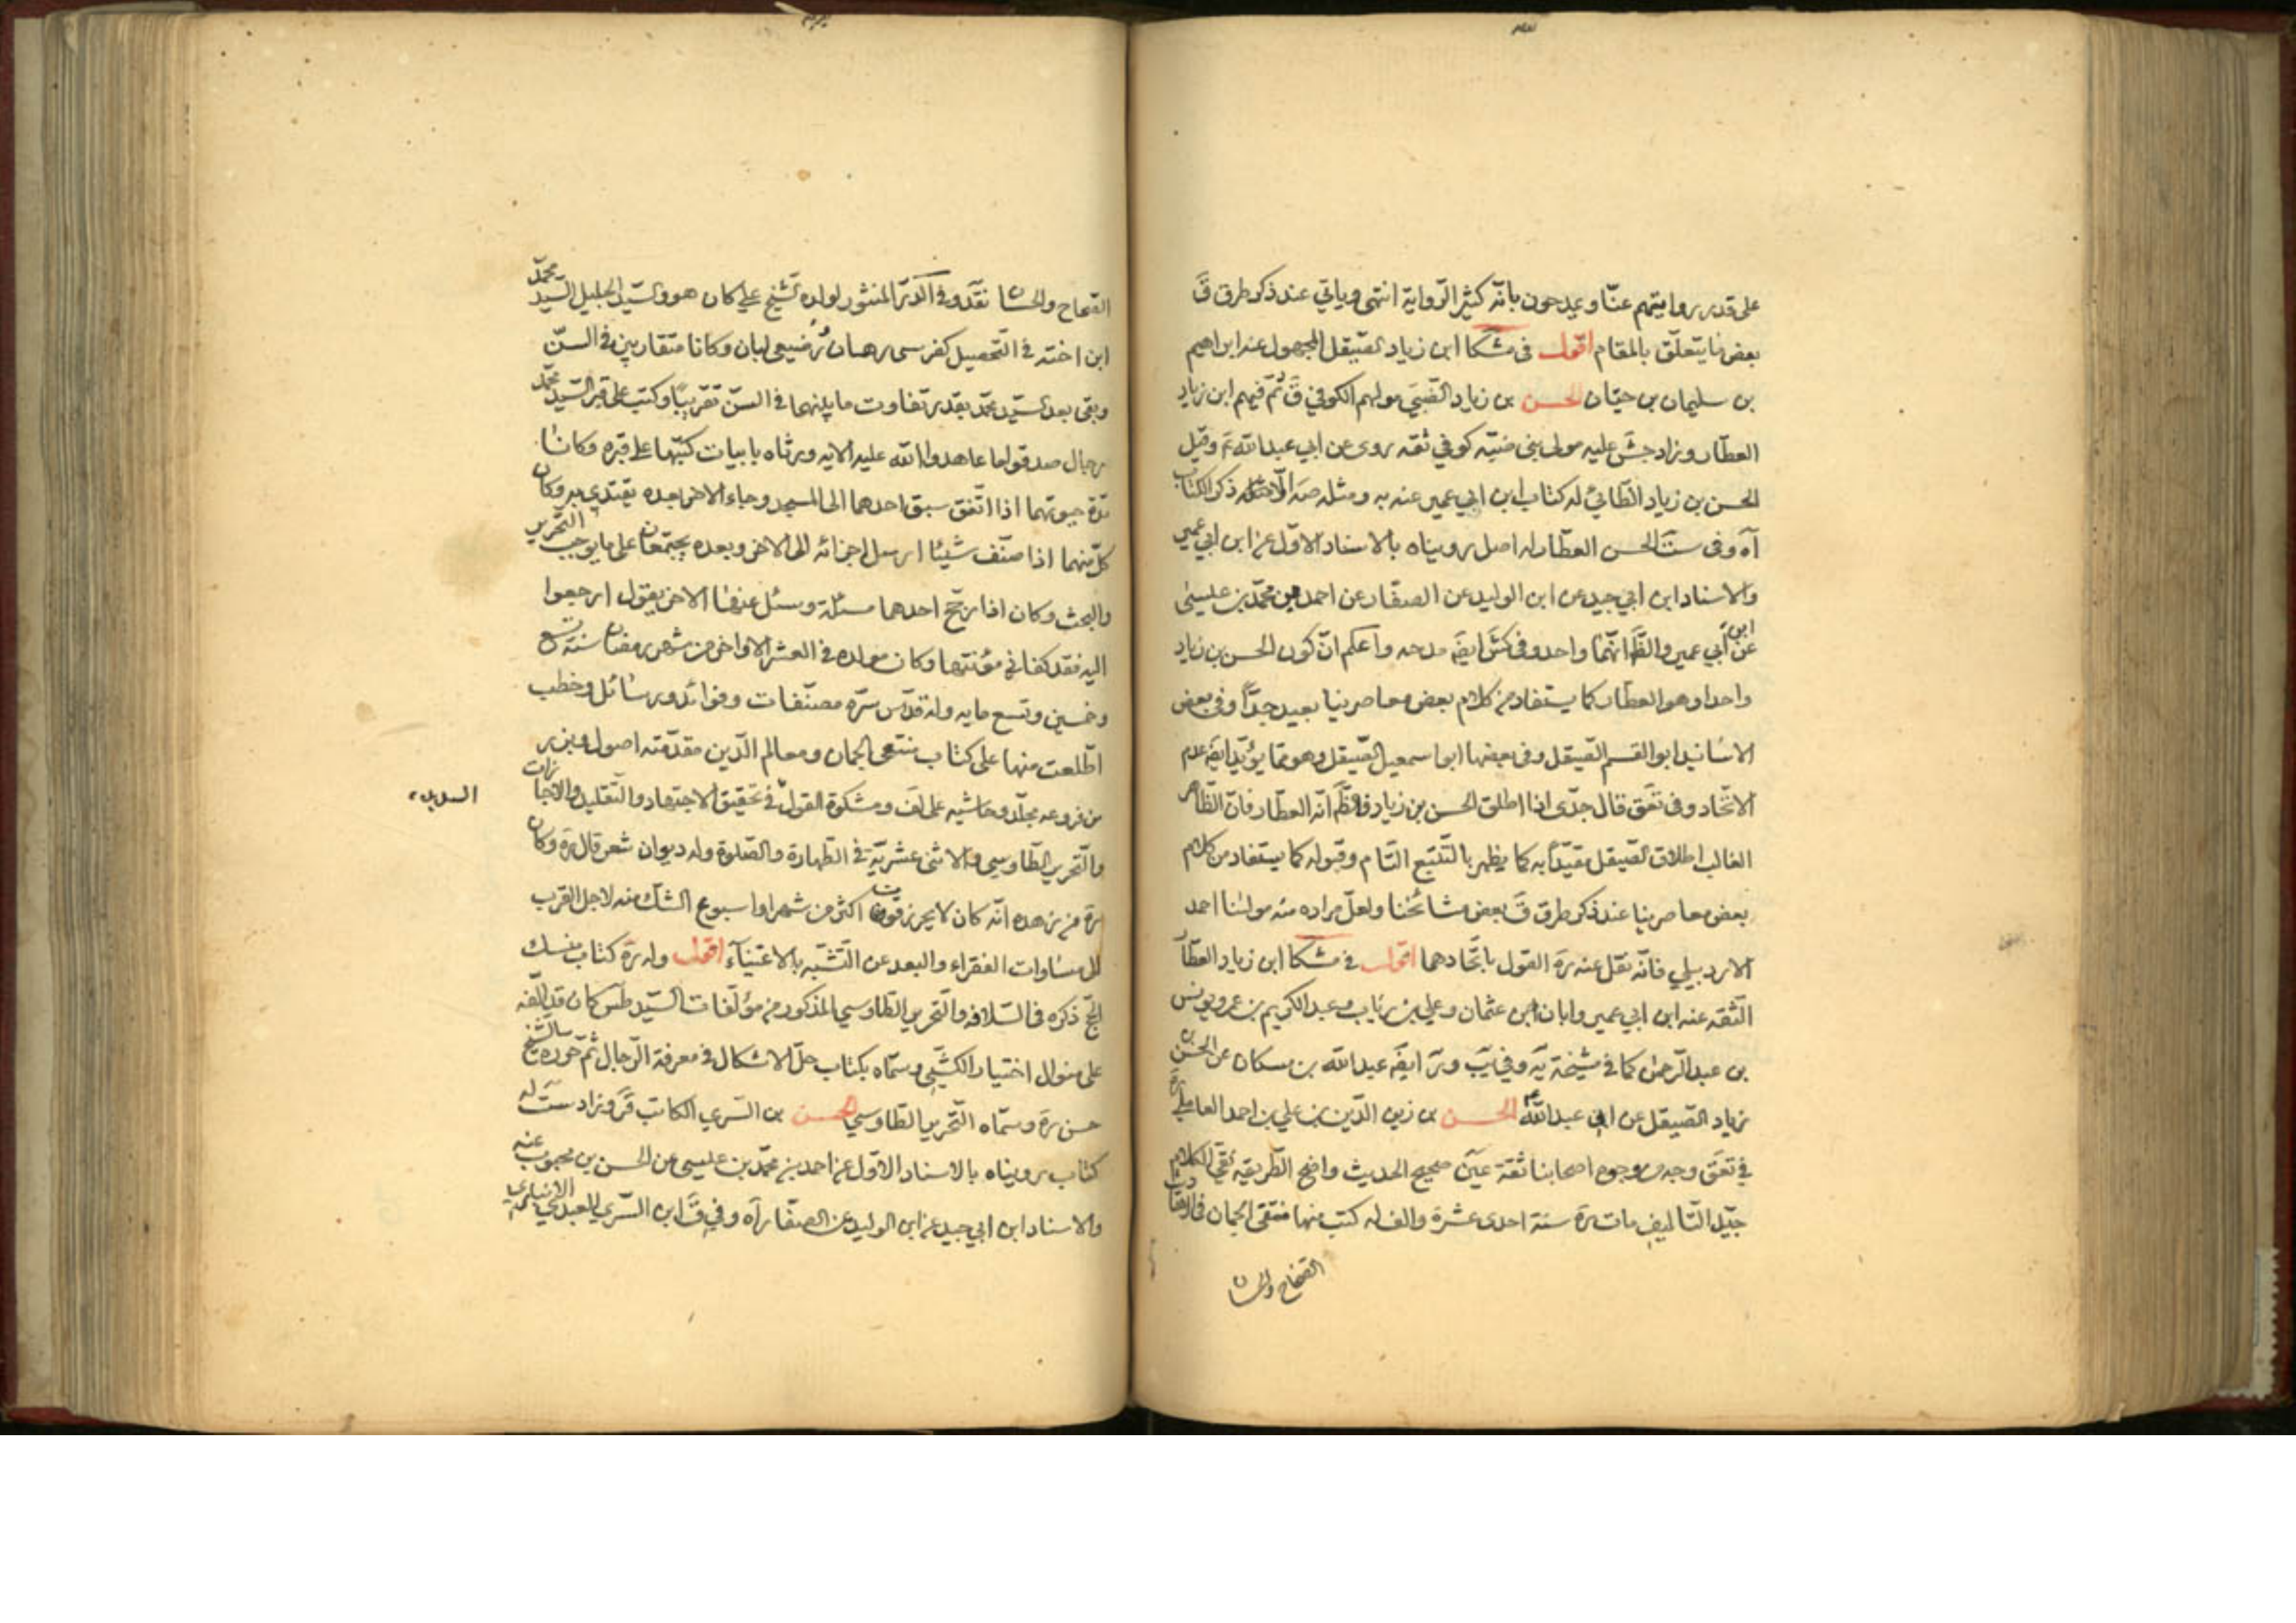 على قدر روايتهم عنّا ويمدحون بانّه كثير الرّواية انتهى وياتي عند ذكر طرق ق
بعض ما يتعلّق بالمقام اقول في مشكا ابن زياد الصّيقل المجهول عنه ابراهيم
بن سليمان بن حيّان الحسن بن زياد الضّبي مولهم الكوفي ق ثمّ فيهم ابن زياد
العطّار وزاد جش عليه مولى بني ضبّه كوفي ثقه روى عن ابي عبدالله ع وقيل
الحسن بن زياد الطّائي له كتاب ابن ابي عمير عنه به ومثله صه ذكر الكتاب
آه وفي ست الحسن العطّار له اصل رويناه بالاسناد الاوّل عن ابن ابي عمير
والاسناد ابن ابي جيد عن ابن الوليد عن الصفّار عن احمد بن محمّد بن عيسى
عن ابن ابي عمير والظّ انّهما واحد وفي كش ايضَ مدحه واعلم انّ كون الحسن بن زياد
واحدا وهو العطّار كما يستفاد من كلام بعض معاصرينا بعيد جدّاً وفي بعض
الاسانيد ابو القسم الصّيقل وفي بعضها ابو اسمعيل الصّيقل وهو ممّا يؤيّد ايضَ عدم
الاتّحاد وفي تعق قال جدّى اذا اطلق الحسن بن زياد فالظّ انّه العطّار فانّ الظّاهر
الغالب اطلاق الصّيقل مقيّداً به كما يظهر بالتّتبّع التّام وقبوله كما يستفاد من كلام
بعض معاصرينا عند ذكر طرق ق بعض مشائخنا ولعلّ مراده منه مولينا احمد
الاردبيلي فانّه نقل عنه ره القول باتّحادهما اقول في مشكا ابن زياد العطّار
الثّقه عنه ابن ابي عمير وابان بن عثمان وعلي بن رئاب وعبدالكريم بن عمرو ويونس
بن عبدالرّحمن كما في مشيخة يه وفي يب وير ايضَ عبدالله بن مسكان عن الحسن بن
زياد الصّيقل عن ابي عبدالله ع الحسن بن زين الدّين بن علي بن احمد العاملي ره
في تعق وجه من وجوه اصحابنا ثقة عين صحيح الحديث واضح الطّريقه نقي الكلام
جيّد التّاليف مات ره سنة احدى عشرة والف له كتب منها منتقى الجمان في الاحاديث
الصّحاح والحسان
الصّحاح والحسان نقد وفي الدّرّ المنثور لولده الشّيخ علي كان هو والسّيّد الجليل السّيّد محمّد
ابن اخته في التّحصيل كفرسي رهان رضيعي لبان وكانا متقاربين في السنّ
وبقى بعد السّيّد محمّد بقدر تفاوت ما بينهما في السنّ تقريباً وكتب على قبر السّيّد محمّد
رجال صدقوا ما عاهدوا الله عليه الايه ورثاه بابيات كتبها على قبره وكانا
مدّة حيوتهما اذا اتّفق سبق احدهما الى المسجد وجاء الاخر بعده يقتدى به وكان
كلّ منهما اذا صنّف شيئا ارسل اجزائه الى الاخر وبعده يجتمعان على ما يوجب التّحرير
والبحث وكان اذا رجّح احدهما مسئلة وسئل عنها الاخر يقول ارجعوا
اليه فقد كفاني مؤنتها وكان مولده في العشر الاواخر من شهر رمضان سنة تسع
وخمسين وتسع مايه وله قدّس سرّه مصنّفات وفوائد ورسائل وخطب
اطّلعت منها على كتاب منتقى الجمان ومعالم الدّين مقدّمته اصول وبرز
من فروعه مجلّد وحاشيه على لف ومشكوة القول في تحقيق الاجتهاد والتّقليد والاجازات
والتّحرير الطّاوسي والاثنى عشريّة في الطّهارة والصّلوة وله ديوان شعر قال ره وكان
السديد
ره من زهده انّه كان لا يحرز قوت اكثر من شهر او اسبوع الشّك منه لاجل القرب
الى مساوات الفقراء والبعد عن التّشبّه بالاغنياء اقول وله ره كتاب مناسك
الحجّ ذكره في السّلافه والتّحرير الطّاوسي المذكور من مؤلّفات السّيّد طس كان قد الّفه
على منوال اختيار الكشّي وسمّاه بكتاب حلّ الاشكال في معرفة الرّجال ثمّ حرّره الشّيخ
حسن ره وسمّاه التّحرير الطّاوسي الحسن بن السّري الكاتب ق وزاد ست له
كتاب رويناه بالاسناد الاوّل عن احمد بن محمّد بن عيسى عن الحسن بن محبوب عنه
والاسناد ابن ابي جيد عن ابن الوليد عن الصفّار آه وفي ق ابن السّري العبدي الانباري